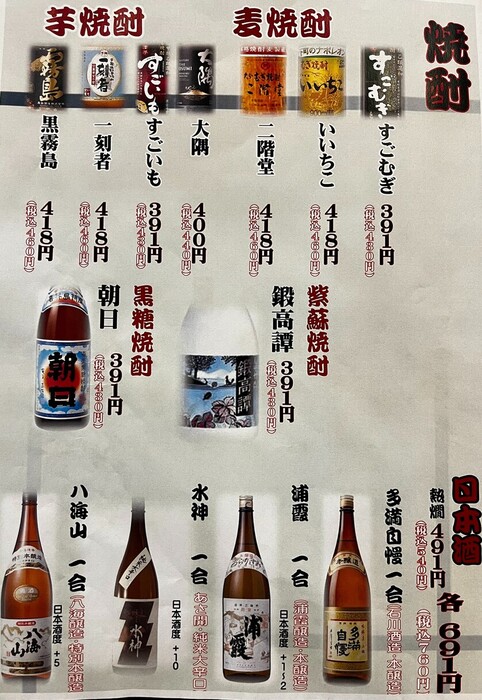 焼酎
麦焼酎
すごむぎ
391円
(税込430円)
いいちこ
418円
(税込460円)
二階堂
418円
(税込460円)
芋焼酎
大隅
400円
(税込440円)
すごいも
391円
(税込430円)
一刻者
418円
(税込460円)
黒霧島
418円
(税込460円)
紫蘇焼酎
鍛高譚
391円
(税込430円)
黒糖焼酎
朝日
391円
(税込430円)
日本酒
各 691円
(税込760円)
熱燗 491円
(税込540円)
多満自慢 一合
(石川酒造・本醸造)
浦霞 一合
(浦霞醸造・本醸造)
日本酒度 +1~2
水神 一合
あさ開・純米大辛口
日本酒度 +10
八海山 一合
(八海醸造・特別本醸造)
日本酒度 +5
すごむぎ
いいちこ
二階堂
大隅
すごいも
一刻者
黒霧島
鍛高譚
朝日
多満自慢
浦霞
水神
八海山